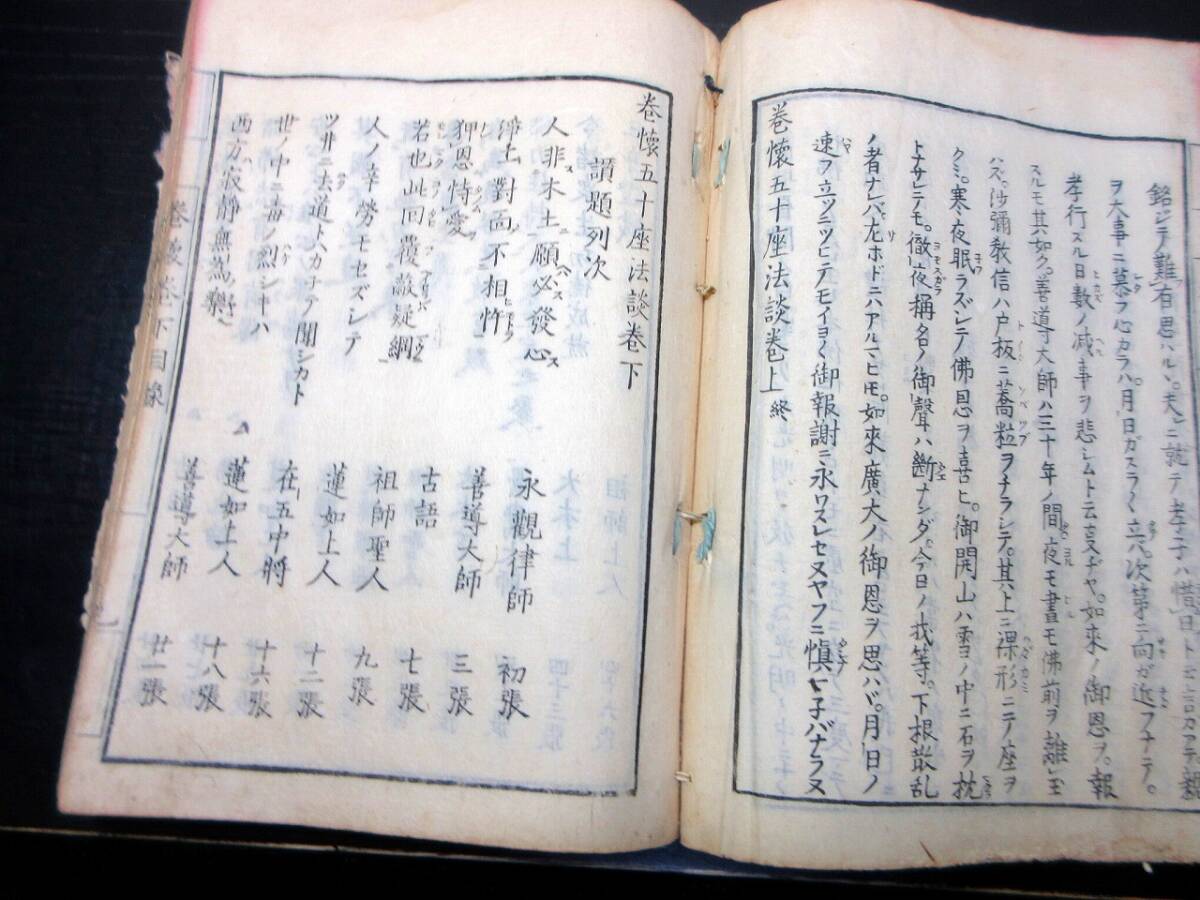 銘ジテ難有思ハルヽ夫レニ就テ孝子ハ惜日ト云言アテ親
ヲ大事ニ慕フ心カラハ。月日ガスラ〱立ハ。次第ニ向ガ近フナテ。
孝行スル日數ノ減事ヲ悲シムト云支ヂヤ。如來ノ御恩ヲ。報
スルモ其如ク。善導大師ハ三十年ノ間。夜モ晝モ佛前ヲ離レ玉
ハズ。沙彌教信ハ戸板ニ蕎粒ヲチラシテ。其上ニ裸形ニテ座ヲ
クミ。寒夜眠ラズシテ佛恩ヲ喜ヒ。御開山ハ雪ノ中ニ石ヲ枕
トナサレテモ。徹夜稱名ノ御聲ハ断ナンダ。今日ノ我等。下根散乱
ノ者ナレバ。左ホドニハアルマヒ𪜈。如來廣大ノ御恩ヲ思ハバ。月日ノ
速フ立ツニツヒテモイヨ〱御報謝ニ永ワスレセヌヤフニ慎マ子バナラヌ
卷懷五十座法談卷上 終
卷懷五十座法談卷下
讃題列次
人非木土願必發心 永觀律師 初張
淨土對面不相忤 善導大師 三張
狎恩恃愛 古語 七張
若也此回覆蔽疑網 祖師聖人 九張
人ノ辛勞モセズシテ 蓮如上人 十二張
ツ井ニ去道トハカ子テ聞シカト 在五中將 十六張
世ノ中ニ毒ノ烈シキハ 蓮如上人 十八張
西方寂靜無爲樂 善導大師 廿一張
卷懷卷下目錄